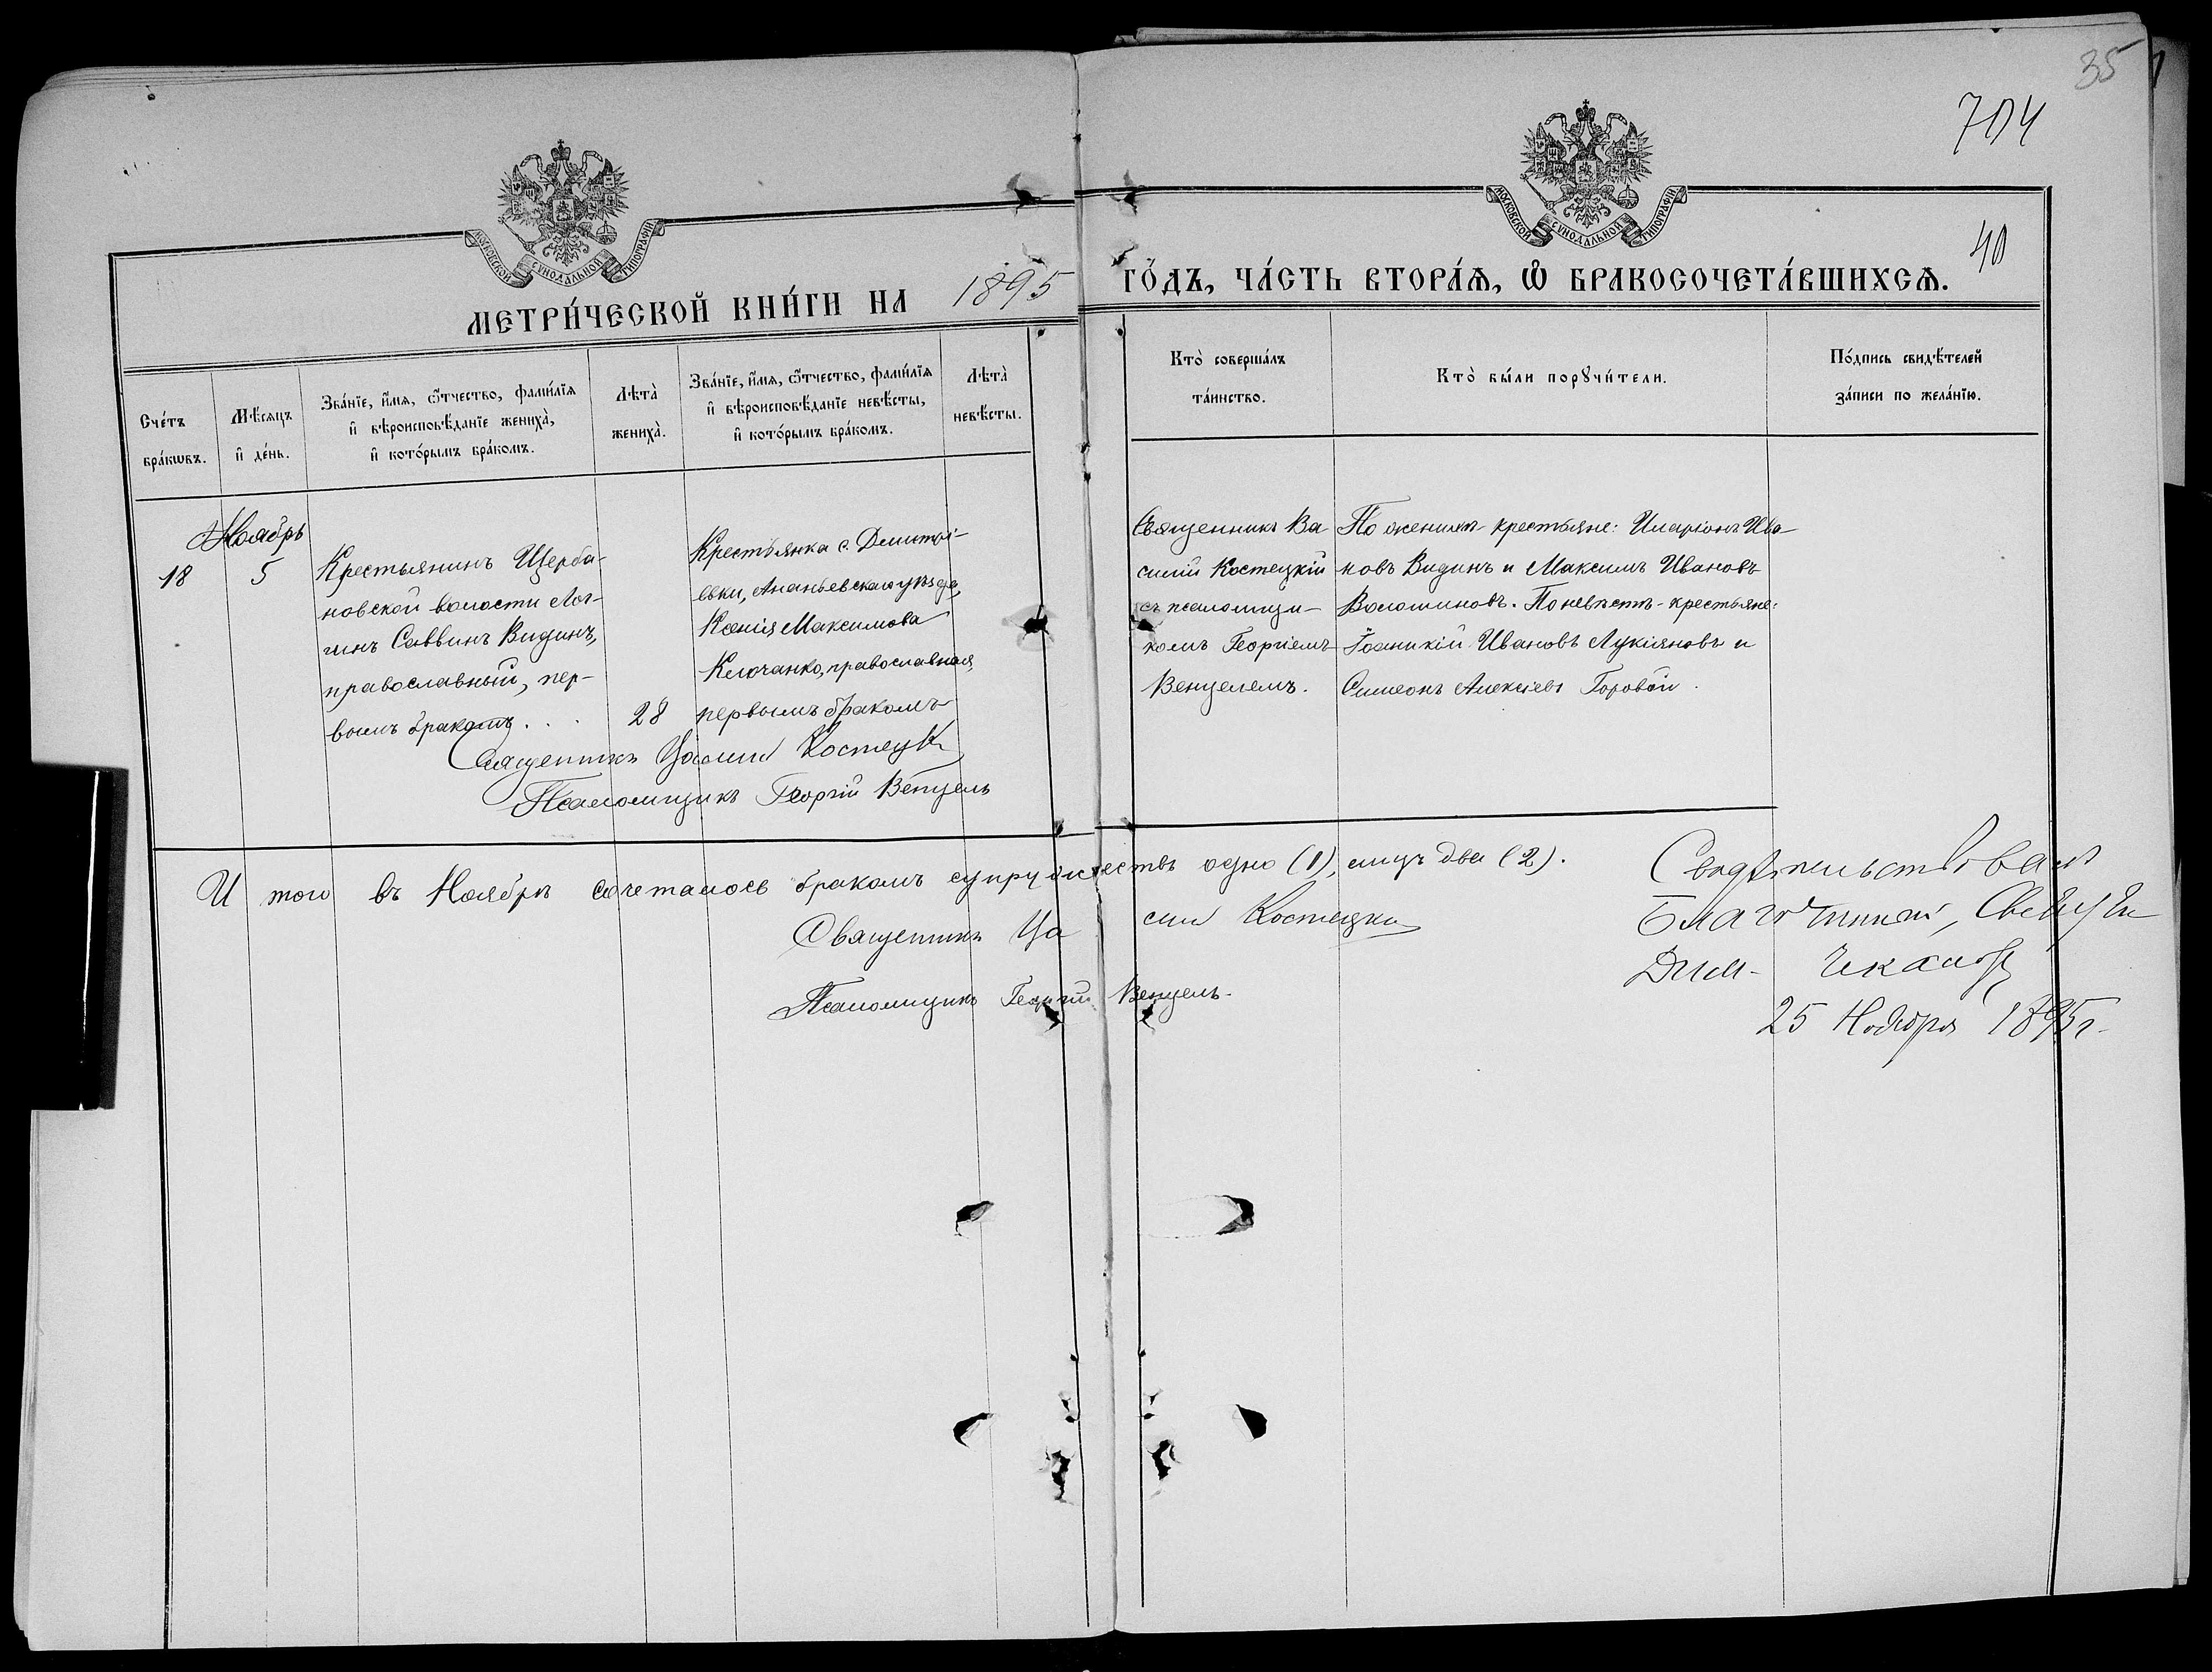 35
704
МОСКОВСКОЙ СѴНОДАЛЬНОЙ ТИПОГРАФІИ
МОСКОВСКОЙ СѴНОДАЛЬНОЙ ТИПОГРАФІИ
40
МЕТРИ́ЧЕСКОЙ КНИ́ГИ НА 1895 ГО́ДЪ, ЧА́СТЬ ВТОРА́Я, Ѽ БРАКОСОЧЕТА́ВШИХСЯ.
Сче́тъ
бра́кѡвъ.
Мѣ́сяцъ
и҆ де́нь.
Зва́нїе, и҆́мя, ѻ҆́тчество, фами́лїя
и҆ вѣроисповѣ́данїе жениха̀,
и҆ кото́рымъ бра́комъ.
Лѣта̀
жениха̀.
Зва́нїе, и҆́мя, ѻ҆́тчество, фами́лїя
и҆ вѣроисповѣ́данїе невѣ́сты,
и҆ кото́рымъ бра́комъ.
Лѣта̀
невѣ́сты.
Кто̀ соверша́лъ
та́инство.
Кто̀ бы́ли порꙋчи́тели.
По́дпись свидѣ́телей
за́писи по жела́нїю.
Ноябрь
18
5
Крестьянинъ Щерба-
новской волости Лог-
гинъ Саввинъ Видинъ,
православный, пер-
вымъ бракомъ . . .
28
Крестьянка с. Дмитрі-
евки, Ананьевскаго уѣзда,
Ксенія Максимова
Клочанко, православная,
первымъ бракомъ
Священникъ Ва-
силій Костецкій
съ псаломщи-
комъ Георгіемъ
Венцелемъ.
По женихѣ - крестьяне: Иларіонъ Ива-
новъ Видинъ и Максимъ Ивановъ
Волошиновъ. По невѣстѣ - крестьяне:
Іоанникій Ивановъ Лукіяновъ и
Симеонъ Алексіевъ Горовой.
Священникъ Костецкій
Псаломщикъ Георгій Венцель
И того въ Ноябрѣ сочеталось бракомъ супружествъ одно (1), лицъ два (2).
Священникъ Костецкій
Псаломщикъ Георгій Венцель.
Свидѣтельствовалъ
Благочинный,
Дим.
25 Ноября 1895 г.